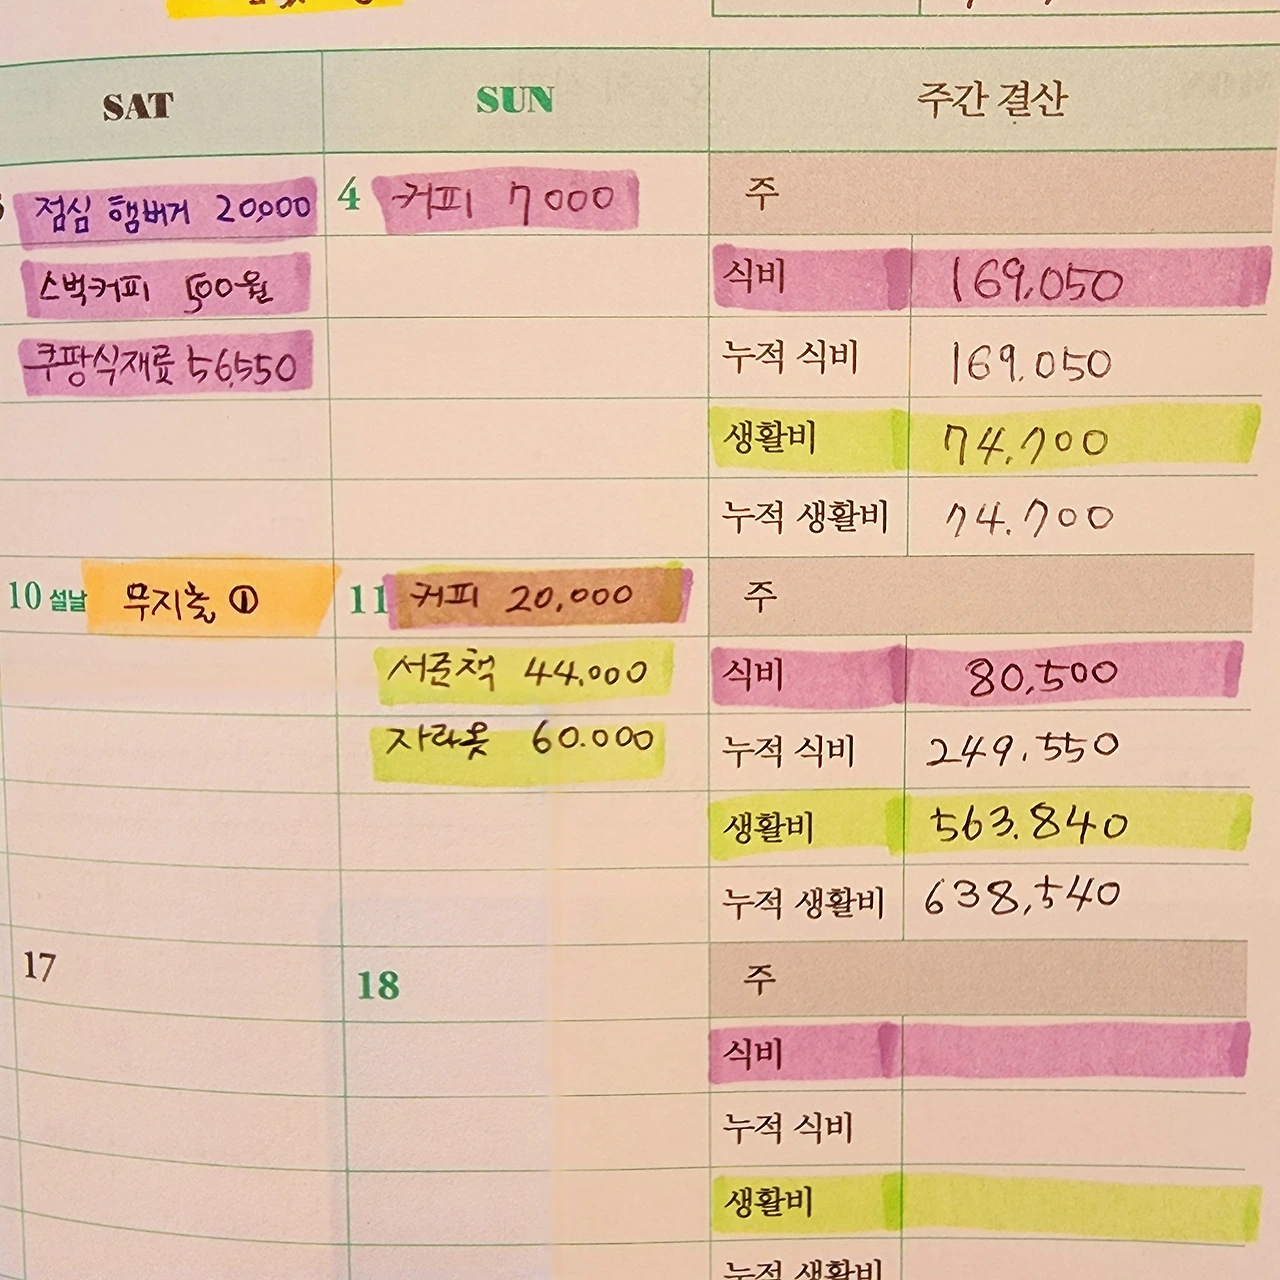 SAT SUN 주간 결산
점심 햄버거 20,000 4 커피 7000 주
스벅커피 500원 식비 169.050
쿠팡식재료 56,550 누적 식비 169.050
생활비 74.700
누적 생활비 74.700
10 설날 무지출 ① 11 커피 20,000 주
서준책 44.000 식비 80,500
자라옷 60.000 누적 식비 249.550
생활비 563.840
누적 생활비 638,540
17 18 주
식비
누적 식비
생활비
누적 생활비